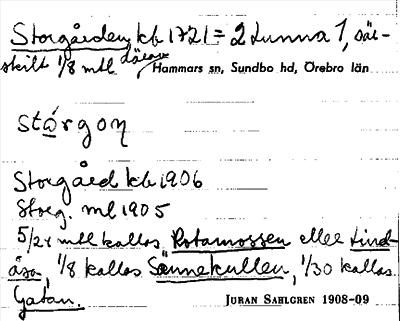 Storgården kb 1721 = 2 tunna 1, sär-
skilt 1/8 mtl därav
Hammars sn, Sundbo hd, Örebro län
stárgoɳ
Storgård kb 1906
Storg. ml 1905
5/24 mtl kallas Rotamossen eller Lind-
åsa, 1/8 kallas Sännekullen, 1/30 kallas
Gatan.
JURAN SAHLGREN 1908-09